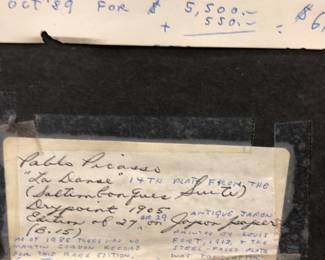 OCT '89 FOR $ 5,500.–
+ 550.– = $6,
Pablo Picasso
"La Danse" 14TH PLATE FROM THE
(Saltimbanques Suite)
Drypoint 1905
Edition of 27, or 29 on ANTIQUE JAPON Japon paper
(B.15) PRINTED BY LOUIS
AS OF 1985 THERE WAS NO FORT, 1913, & THE
MARTIN GORDON RECORD STEEL-FACED PLATE
FOR THIS RARE EDITION. WAS